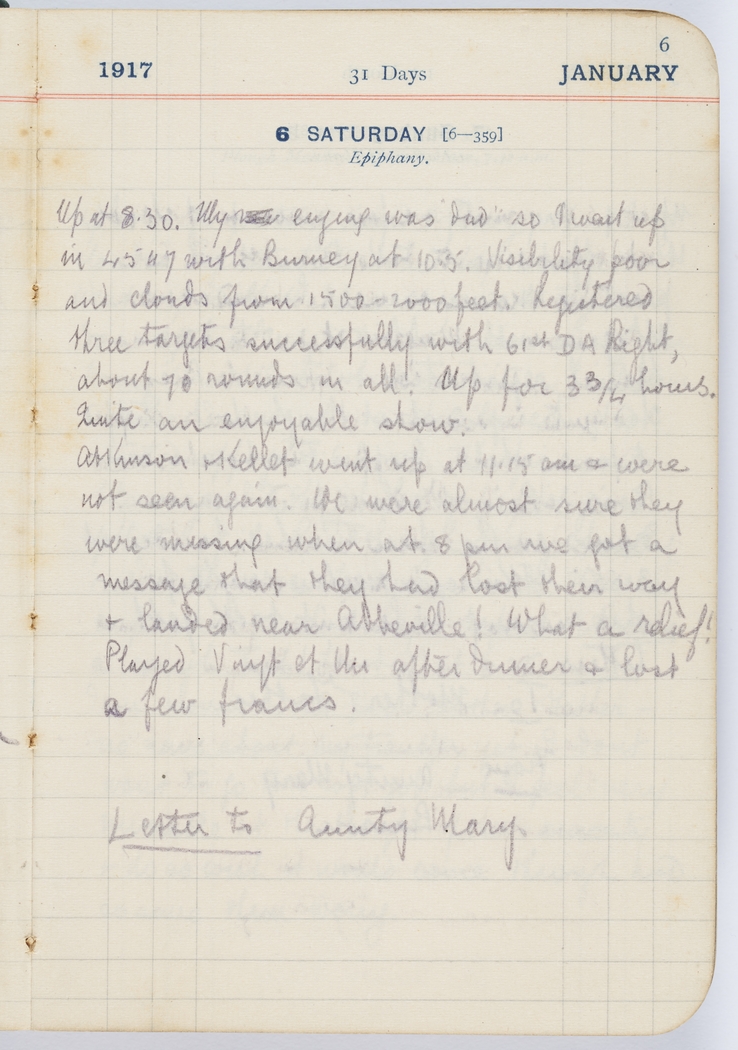 6
1917 31 Days JANUARY
6 SATURDAY [6—359]
Epiphany.
Up at 8.30. My engine was "dud" so I went up
in 4547 with Burney at 10.5. Visibility poor
and clouds from 1500-2000 feet. Registered
three targets successfully with 61st DA Right,
about 70 rounds in all. Up for 3 3/4 hours.
Quite an enjoyable show.
Atkinson + Kellet went up at 11.15 am & were
not seen again. We were almost sure they
were missing when at 8 pm we got a
message that they had lost their way
+ landed near Abbeville! What a relief!
Played Vingt et Un after dinner & lost
a few francs.
Letter to Aunty Mary.